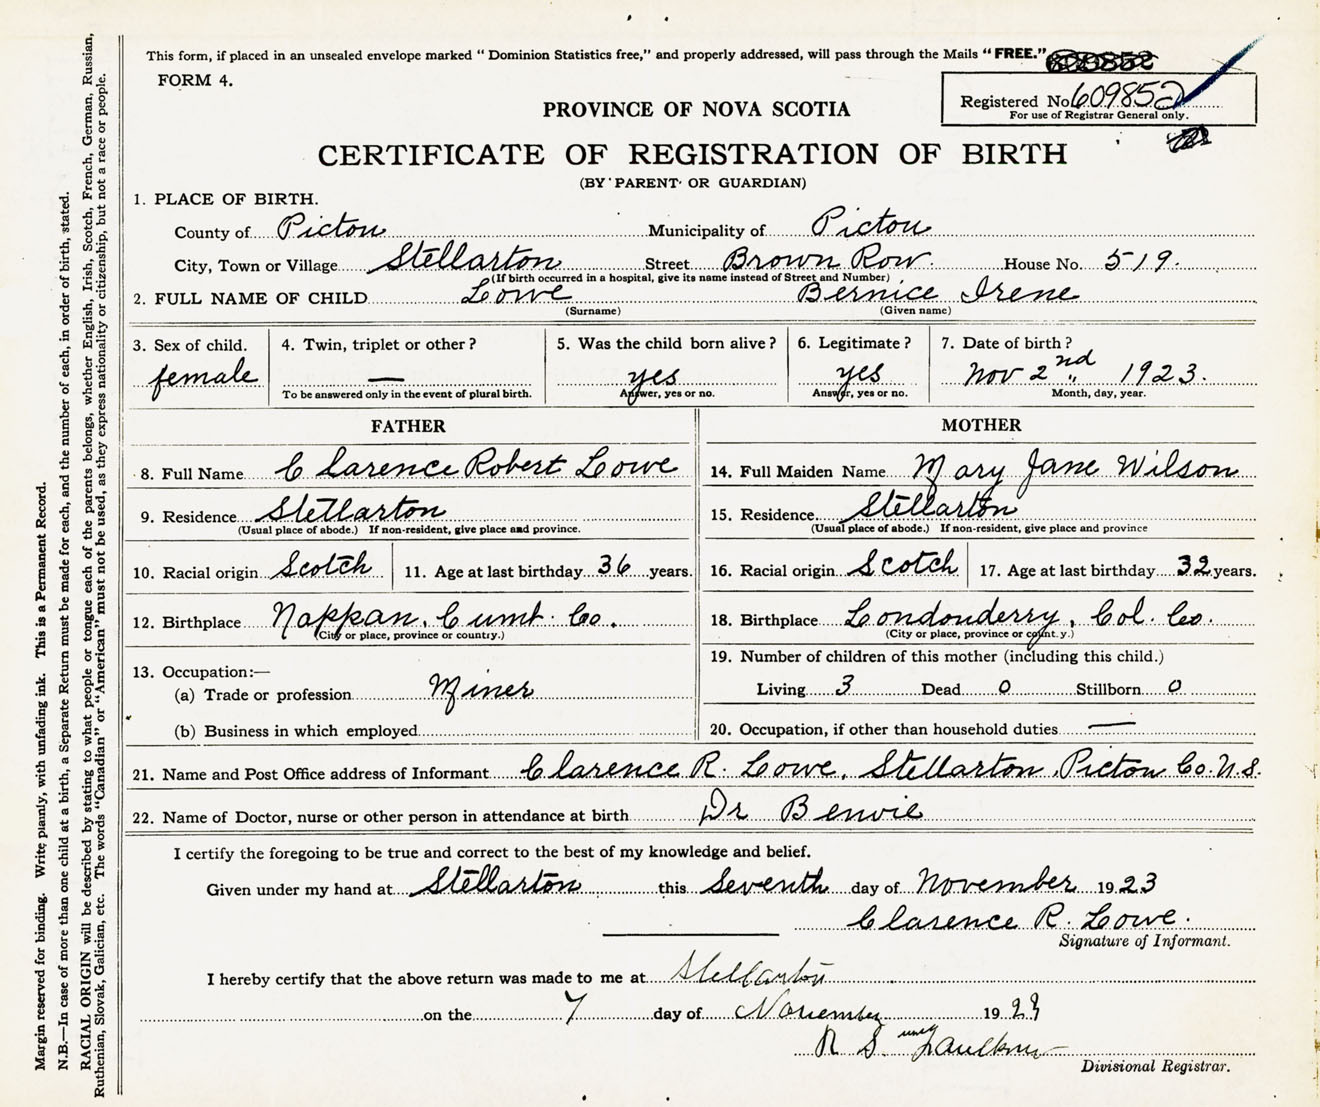 This form, if placed in an unsealed envelope marked "Dominion Statistics free," and properly addressed, will pass through the Mails "FREE."
FORM 4.
Registered No. 609852
For use of Registrar General only.
PROVINCE OF NOVA SCOTIA
CERTIFICATE OF REGISTRATION OF BIRTH
(BY PARENT OR GUARDIAN)
1. PLACE OF BIRTH.
County of Pictou Municipality of Pictou
City, Town or Village Stellarton Street Brown Row. House No. 519.
(If birth occurred in a hospital, give its name instead of Street and Number)
2. FULL NAME OF CHILD Lowe Bernice Irene
(Surname) (Given name)
3. Sex of child. 4. Twin, triplet or other? 5. Was the child born alive? 6. Legitimate? 7. Date of birth?
female — yes yes Nov 2nd 1923.
To be answered only in the event of plural birth. Answer, yes or no. Answer, yes or no. Month, day, year.
FATHER MOTHER
8. Full Name Clarence Robert Lowe 14. Full Maiden Name Mary Jane Wilson
9. Residence Stellarton 15. Residence Stellarton
(Usual place of abode.) If non-resident, give place and province. (Usual place of abode.) If non-resident, give place and province
10. Racial origin Scotch 11. Age at last birthday 36 years. 16. Racial origin Scotch 17. Age at last birthday 32 years.
12. Birthplace Nappan, Cumt. Co. 18. Birthplace Londonderry, Col. Co.
(City or place, province or country.) (City or place, province or count.y.)
13. Occupation:— 19. Number of children of this mother (including this child.)
(a) Trade or profession Miner Living 3 Dead 0 Stillborn 0
(b) Business in which employed 20. Occupation, if other than household duties —
21. Name and Post Office address of Informant Clarence R. Lowe, Stellarton, Pictou Co. N.S.
22. Name of Doctor, nurse or other person in attendance at birth Dr Benvie
I certify the foregoing to be true and correct to the best of my knowledge and belief.
Given under my hand at Stellarton this Seventh day of November 1923
Clarence R. Lowe.
Signature of Informant.
I hereby certify that the above return was made to me at Stellarton
on the 7 day of November 1923
R S Faulkner
Divisional Registrar.
Margin reserved for binding. Write plainly, with unfading ink. This is a Permanent Record.
N.B.—In case of more than one child at a birth, a Separate Return must be made for each, and the number of each, in order of birth, stated.
RACIAL ORIGIN will be described by stating to what people or tongue each of the parents belongs, whether English, Irish, Scotch, French, German, Russian,
Ruthenian, Slovak, Galician, etc. The words "Canadian" or "American" must not be used, as they express nationality or citizenship, but not a race or people.